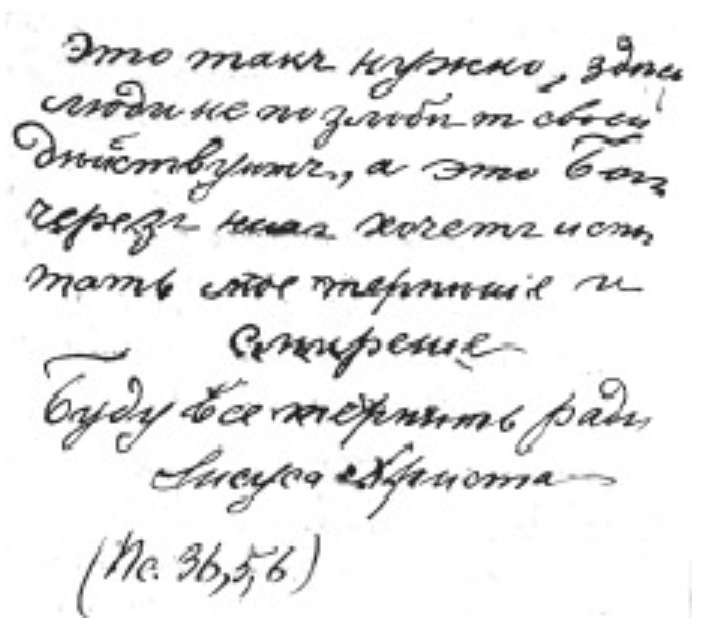 Это такъ нужно, здѣсь
люди не по злобѣ своей
дѣйствуютъ, а это Богъ
черезъ нихъ хочетъ испы
тать мое терпѣніе и
смиреніе
Буду все терпѣть ради
Іисуса Христа
(Пс. 36,5,6)